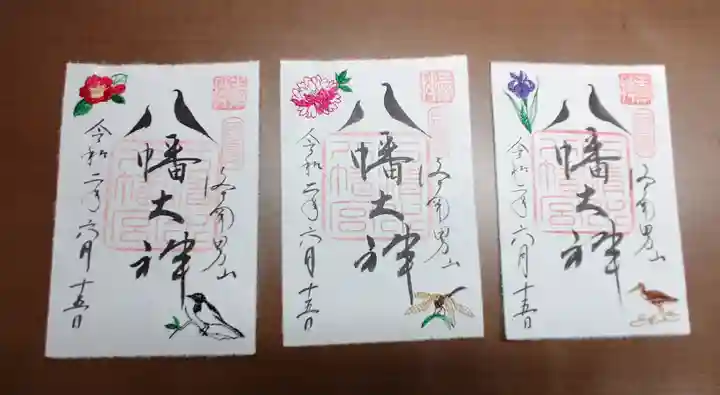 洛南男山
八幡大神
令和二年六月十五日
洛南男山
八幡大神
令和二年六月十五日
洛南男山
八幡大神
令和二年六月十五日